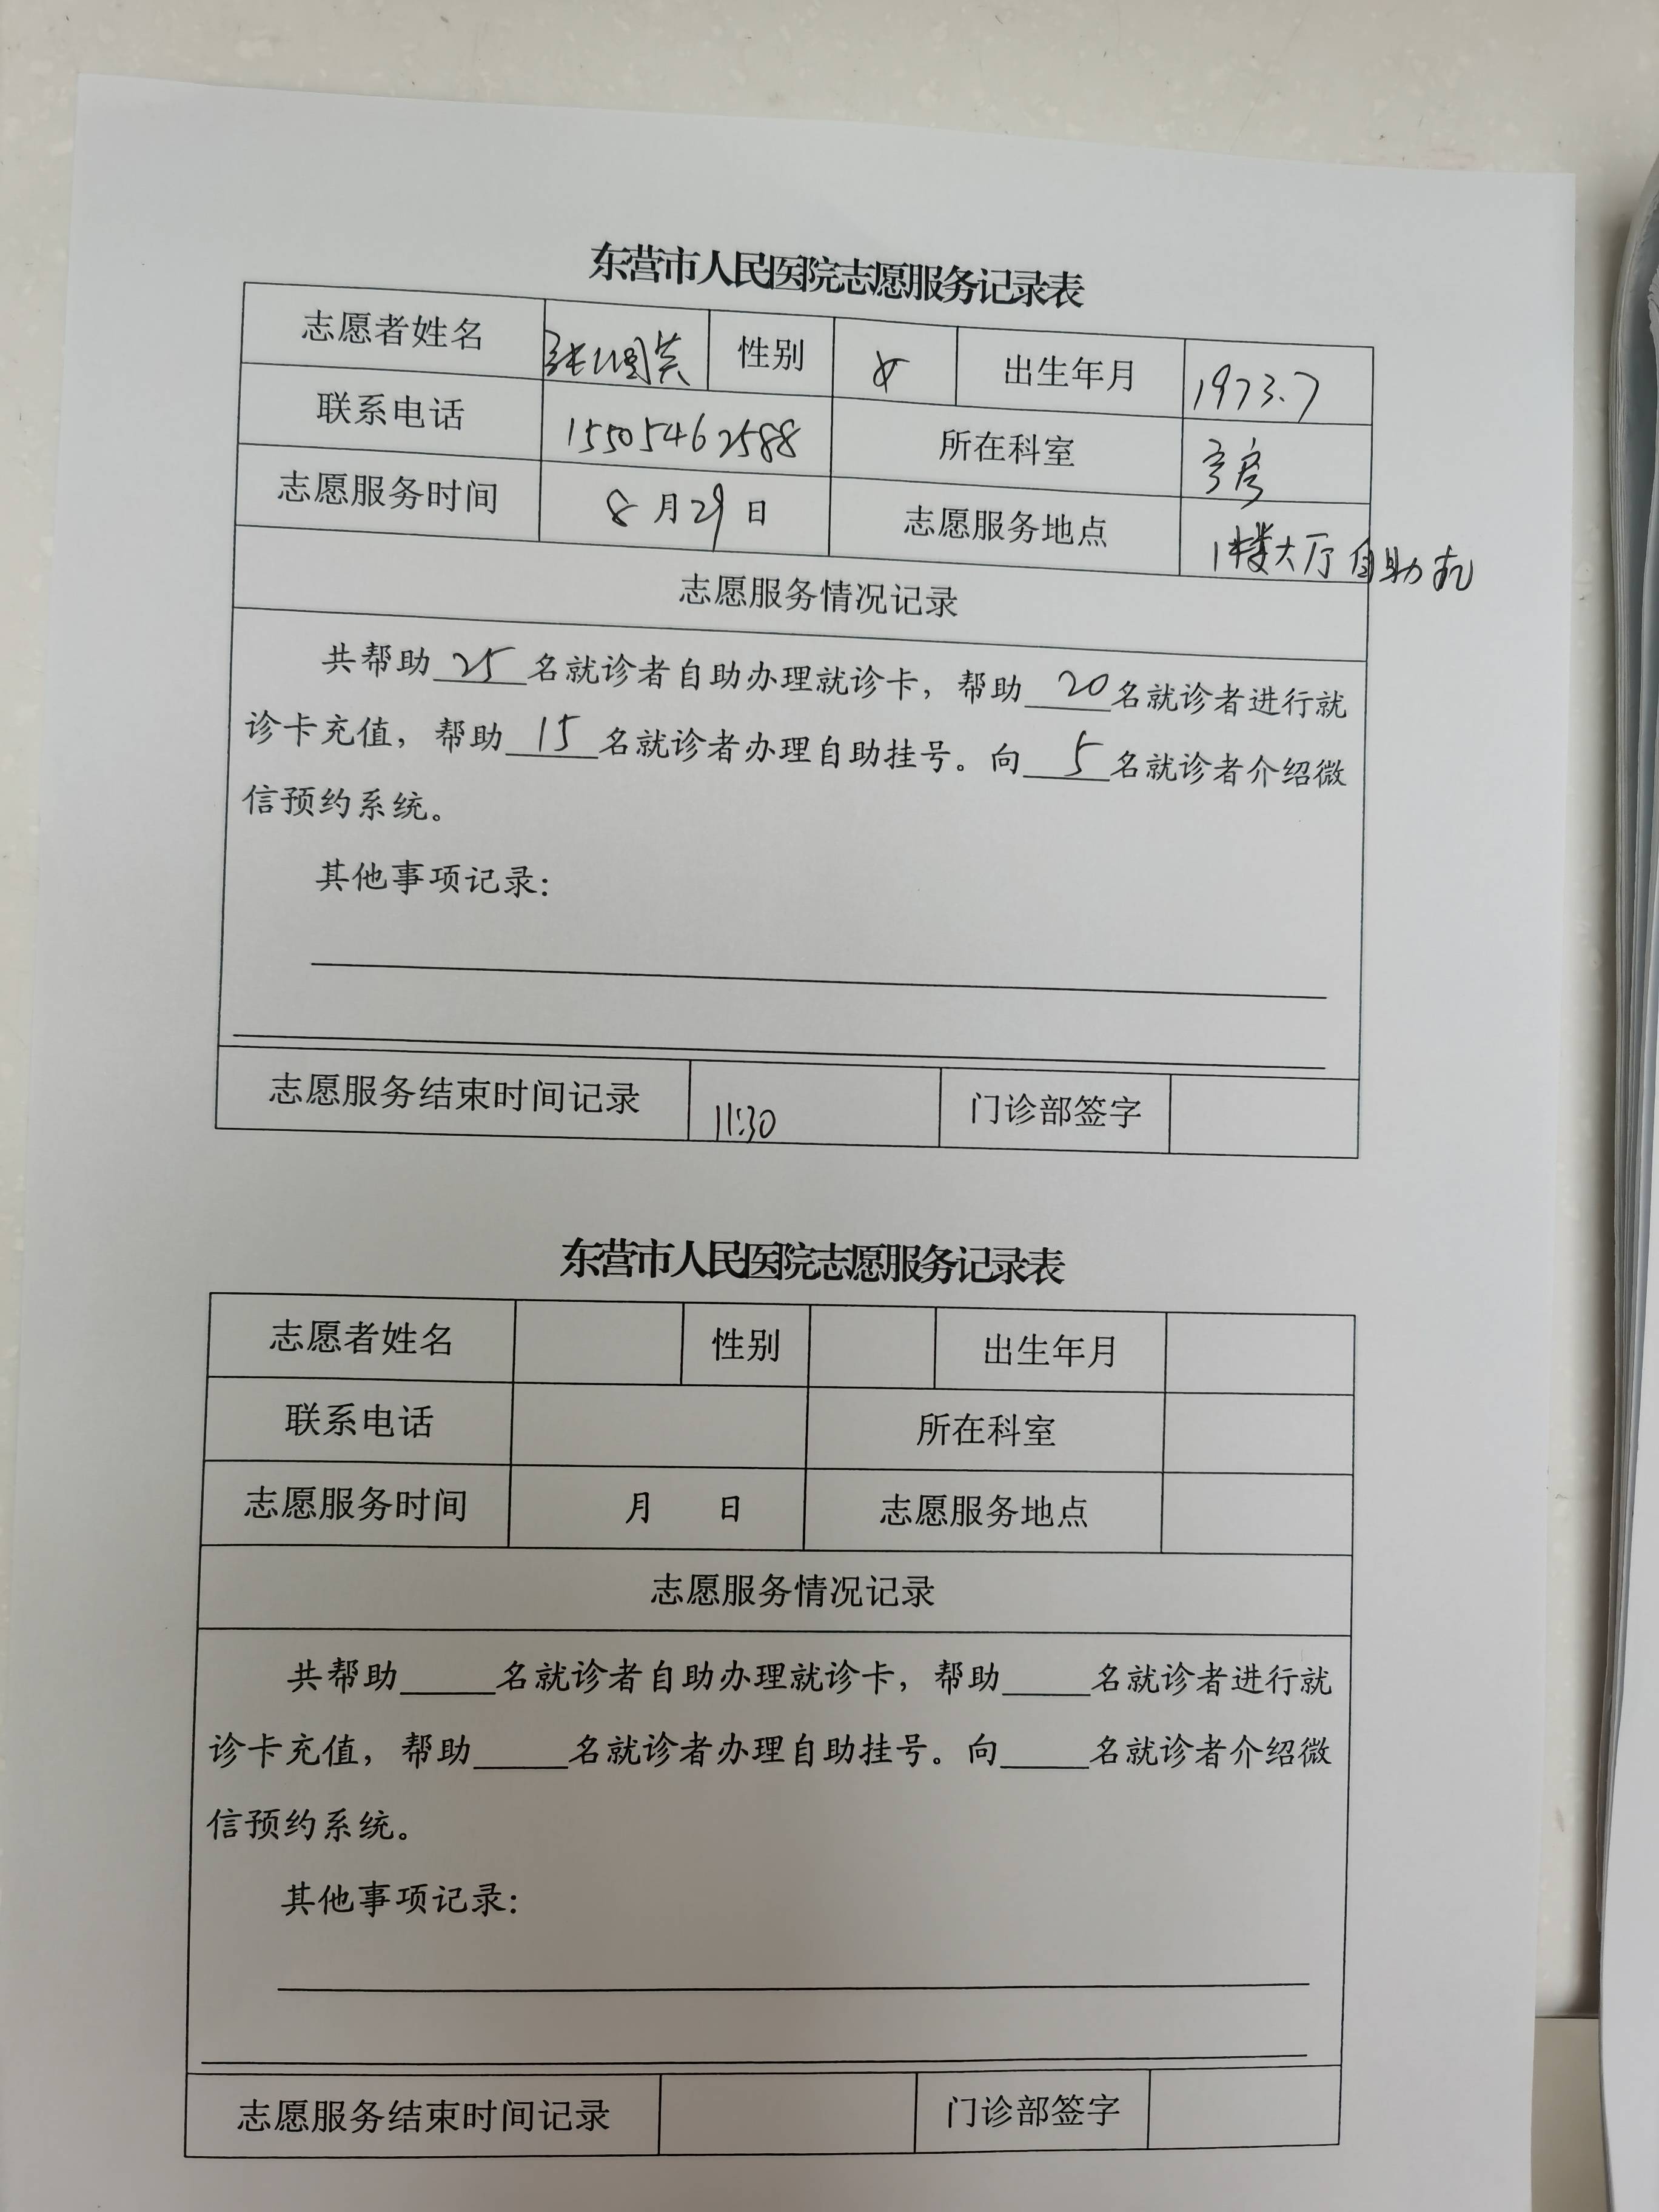 东营市人民医院志愿服务记录表
志愿者姓名 性别 女 出生年月 1973.7
联系电话 15505462588 所在科室
志愿服务时间 8月29日 志愿服务地点 1楼大厅自助机
志愿服务情况记录
共帮助25名就诊者自助办理就诊卡，帮助20名就诊者进行就
诊卡充值，帮助15名就诊者办理自助挂号。向5名就诊者介绍微
信预约系统。
其他事项记录：
志愿服务结束时间记录 11:30 门诊部签字
东营市人民医院志愿服务记录表
志愿者姓名 性别 出生年月
联系电话 所在科室
志愿服务时间 月 日 志愿服务地点
志愿服务情况记录
共帮助_____名就诊者自助办理就诊卡，帮助_____名就诊者进行就
诊卡充值，帮助_____名就诊者办理自助挂号。向_____名就诊者介绍微
信预约系统。
其他事项记录：
志愿服务结束时间记录 门诊部签字